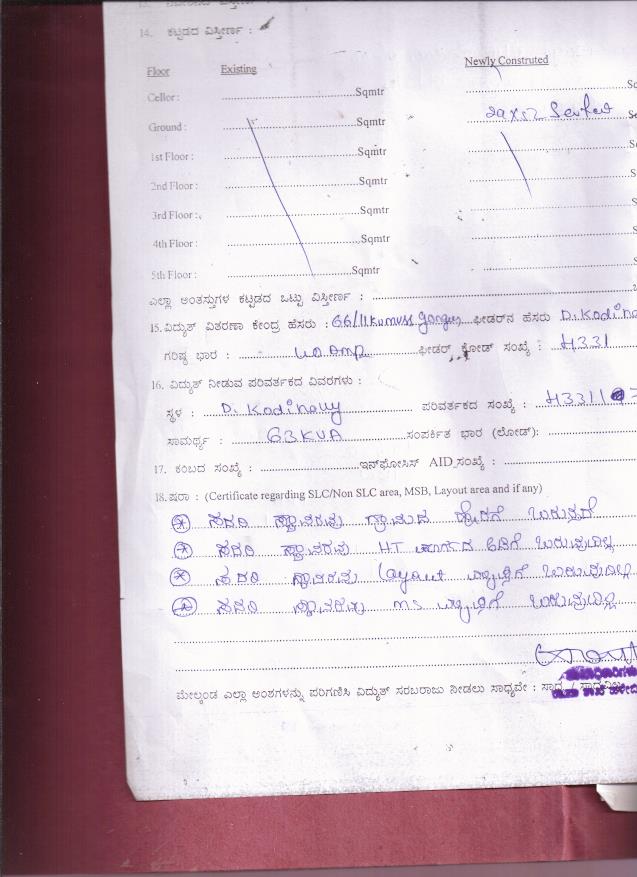 14. ಕಟ್ಟಡದ ವಿಸ್ತೀರ್ಣ :
Floor Existing Newly Construted
Cellor : ........ Sqmtr
Ground : ........ Sqmtr 29x52
1st Floor : ........ Sqmtr
2nd Floor : ........ Sqmtr
3rd Floor : ........ Sqmtr
4th Floor : ........ Sqmtr
5th Floor : ........ Sqmtr
ಎಲ್ಲಾ ಅಂತಸ್ತುಗಳ ಕಟ್ಟಡದ ಒಟ್ಟು ವಿಸ್ತೀರ್ಣ :
15. ವಿದ್ಯುತ್ ವಿತರಣಾ ಕೇಂದ್ರ ಹೆಸರು : 66/11 ಫೀಡರ್‌ನ ಹೆಸರು
ಗರಿಷ್ಠ ಭಾರ : 40 Amp ಫೀಡರ್ ಕೋಡ್ ಸಂಖ್ಯೆ : H331
16. ವಿದ್ಯುತ್ ನೀಡುವ ಪರಿವರ್ತಕದ ವಿವರಗಳು :
ಸ್ಥಳ : D. Kodihally ಪರಿವರ್ತಕದ ಸಂಖ್ಯೆ :
ಸಾಮರ್ಥ್ಯ : 63KVA ಸಂಪರ್ಕಿತ ಭಾರ (ಲೋಡ್):
17. ಕಂಬದ ಸಂಖ್ಯೆ : ಇನ್‌ಫೋಸಿಸ್ AID ಸಂಖ್ಯೆ :
18. ಷರಾ : (Certificate regarding SLC/Non SLC area, MSB, Layout area and if any)
ಸದರಿ ಸ್ಥಾವರವು ಗ್ರಾಮದ ಬರುತ್ತದೆ
ಸದರಿ ಸ್ಥಾವರವು HT ಮಾರ್ಗದ ಕೆಳಗೆ ಬರುವುದಿಲ್ಲ
ಸದರಿ ಸ್ಥಾವರವು Layout ವ್ಯಾಪ್ತಿಗೆ ಬರುವುದಿಲ್ಲ
ಸದರಿ ಸ್ಥಾವರವು MS ವ್ಯಾಪ್ತಿಗೆ ಬರುವುದಿಲ್ಲ
ಮೇಲ್ಕಂಡ ಎಲ್ಲಾ ಅಂಶಗಳನ್ನು ಪರಿಗಣಿಸಿ ವಿದ್ಯುತ್ ಸರಬರಾಜು ನೀಡಲು ಸಾಧ್ಯವೇ :